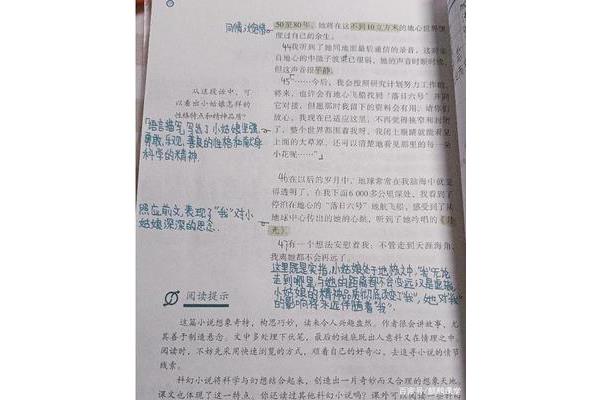 50至80年，她将在这不到10立方米的地心世界里
度过自己的余生。
同情；惋惜。
44我听到了她同地面最后通信的录音，这时来
自地心的中微子波束已很弱，她的声音时断时续，
但这声音很平静。
45“……今后，我会按照研究计划努力工作的。
将来，也许会有地心飞船找到“落日六号”并同
它对接，但愿那时我留下的资料会有用。请你们
放心，我现在已适应这里，不再觉得狭窄和封闭
了，整个世界都围着我呀，我闭上眼睛就能看见
上面的大草原，还可以清楚地看见那里的每一朵
小花呢……”
从这段话中，可
以看出小姑娘怎样的
性格特点和精神品质？
「语言描写」写出了小姑娘坚强、
勇敢、乐观、善良的性格和献身
科学的精神.
46在以后的岁月中，地球常常在我脑海中就变
得透明了，在我下面6 000多公里深处，我看到了
停泊在地心的“落日六号”地航飞船，感受到了从
地球中心传出的她的心跳，听到了她吟唱的《月
光》。
照应前文，表现了“我”对小
姑娘深深的思念.
47有一个想法安慰着我：不管走到天涯海角，
我离她都不会再远了。
这里既是实指，小姑娘处于地核之中，“我”无论
走到哪里，与她的距离都不会变远；又是虚指，
小姑娘的精神品质彻底改变了“我”，她对“我”
的影响将永远伴随着“我”.
阅读提示
这篇小说想象奇特，构思巧妙，读来令人兴趣盎然。作者很会讲故事，尤
其善于制造悬念。文中多处埋下伏笔，最后的谜底既出人意料又在情理之中。
阅读时，不妨先采用快速浏览的方式，顺着自己的好奇心，去追寻小说的情节
线索。
科幻小说将科学与幻想结合起来，创造出一片奇妙而又合理的想象天地。
课文也体现了这一特点。你还读过其他科幻小说吗？课外可以阅读一些科幻